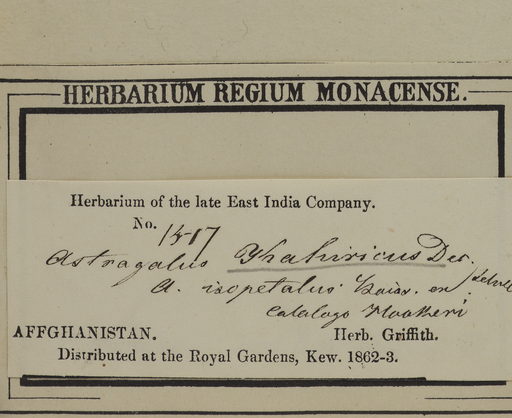 HERBARIUM REGIUM MONACENSE.
Herbarium of the late East India Company.
No. 1517
Astragalus
A. isopetalus Boiss. en
Catalogo Hookeri
AFFGHANISTAN. Herb. Griffith.
Distributed at the Royal Gardens, Kew. 1862-3.